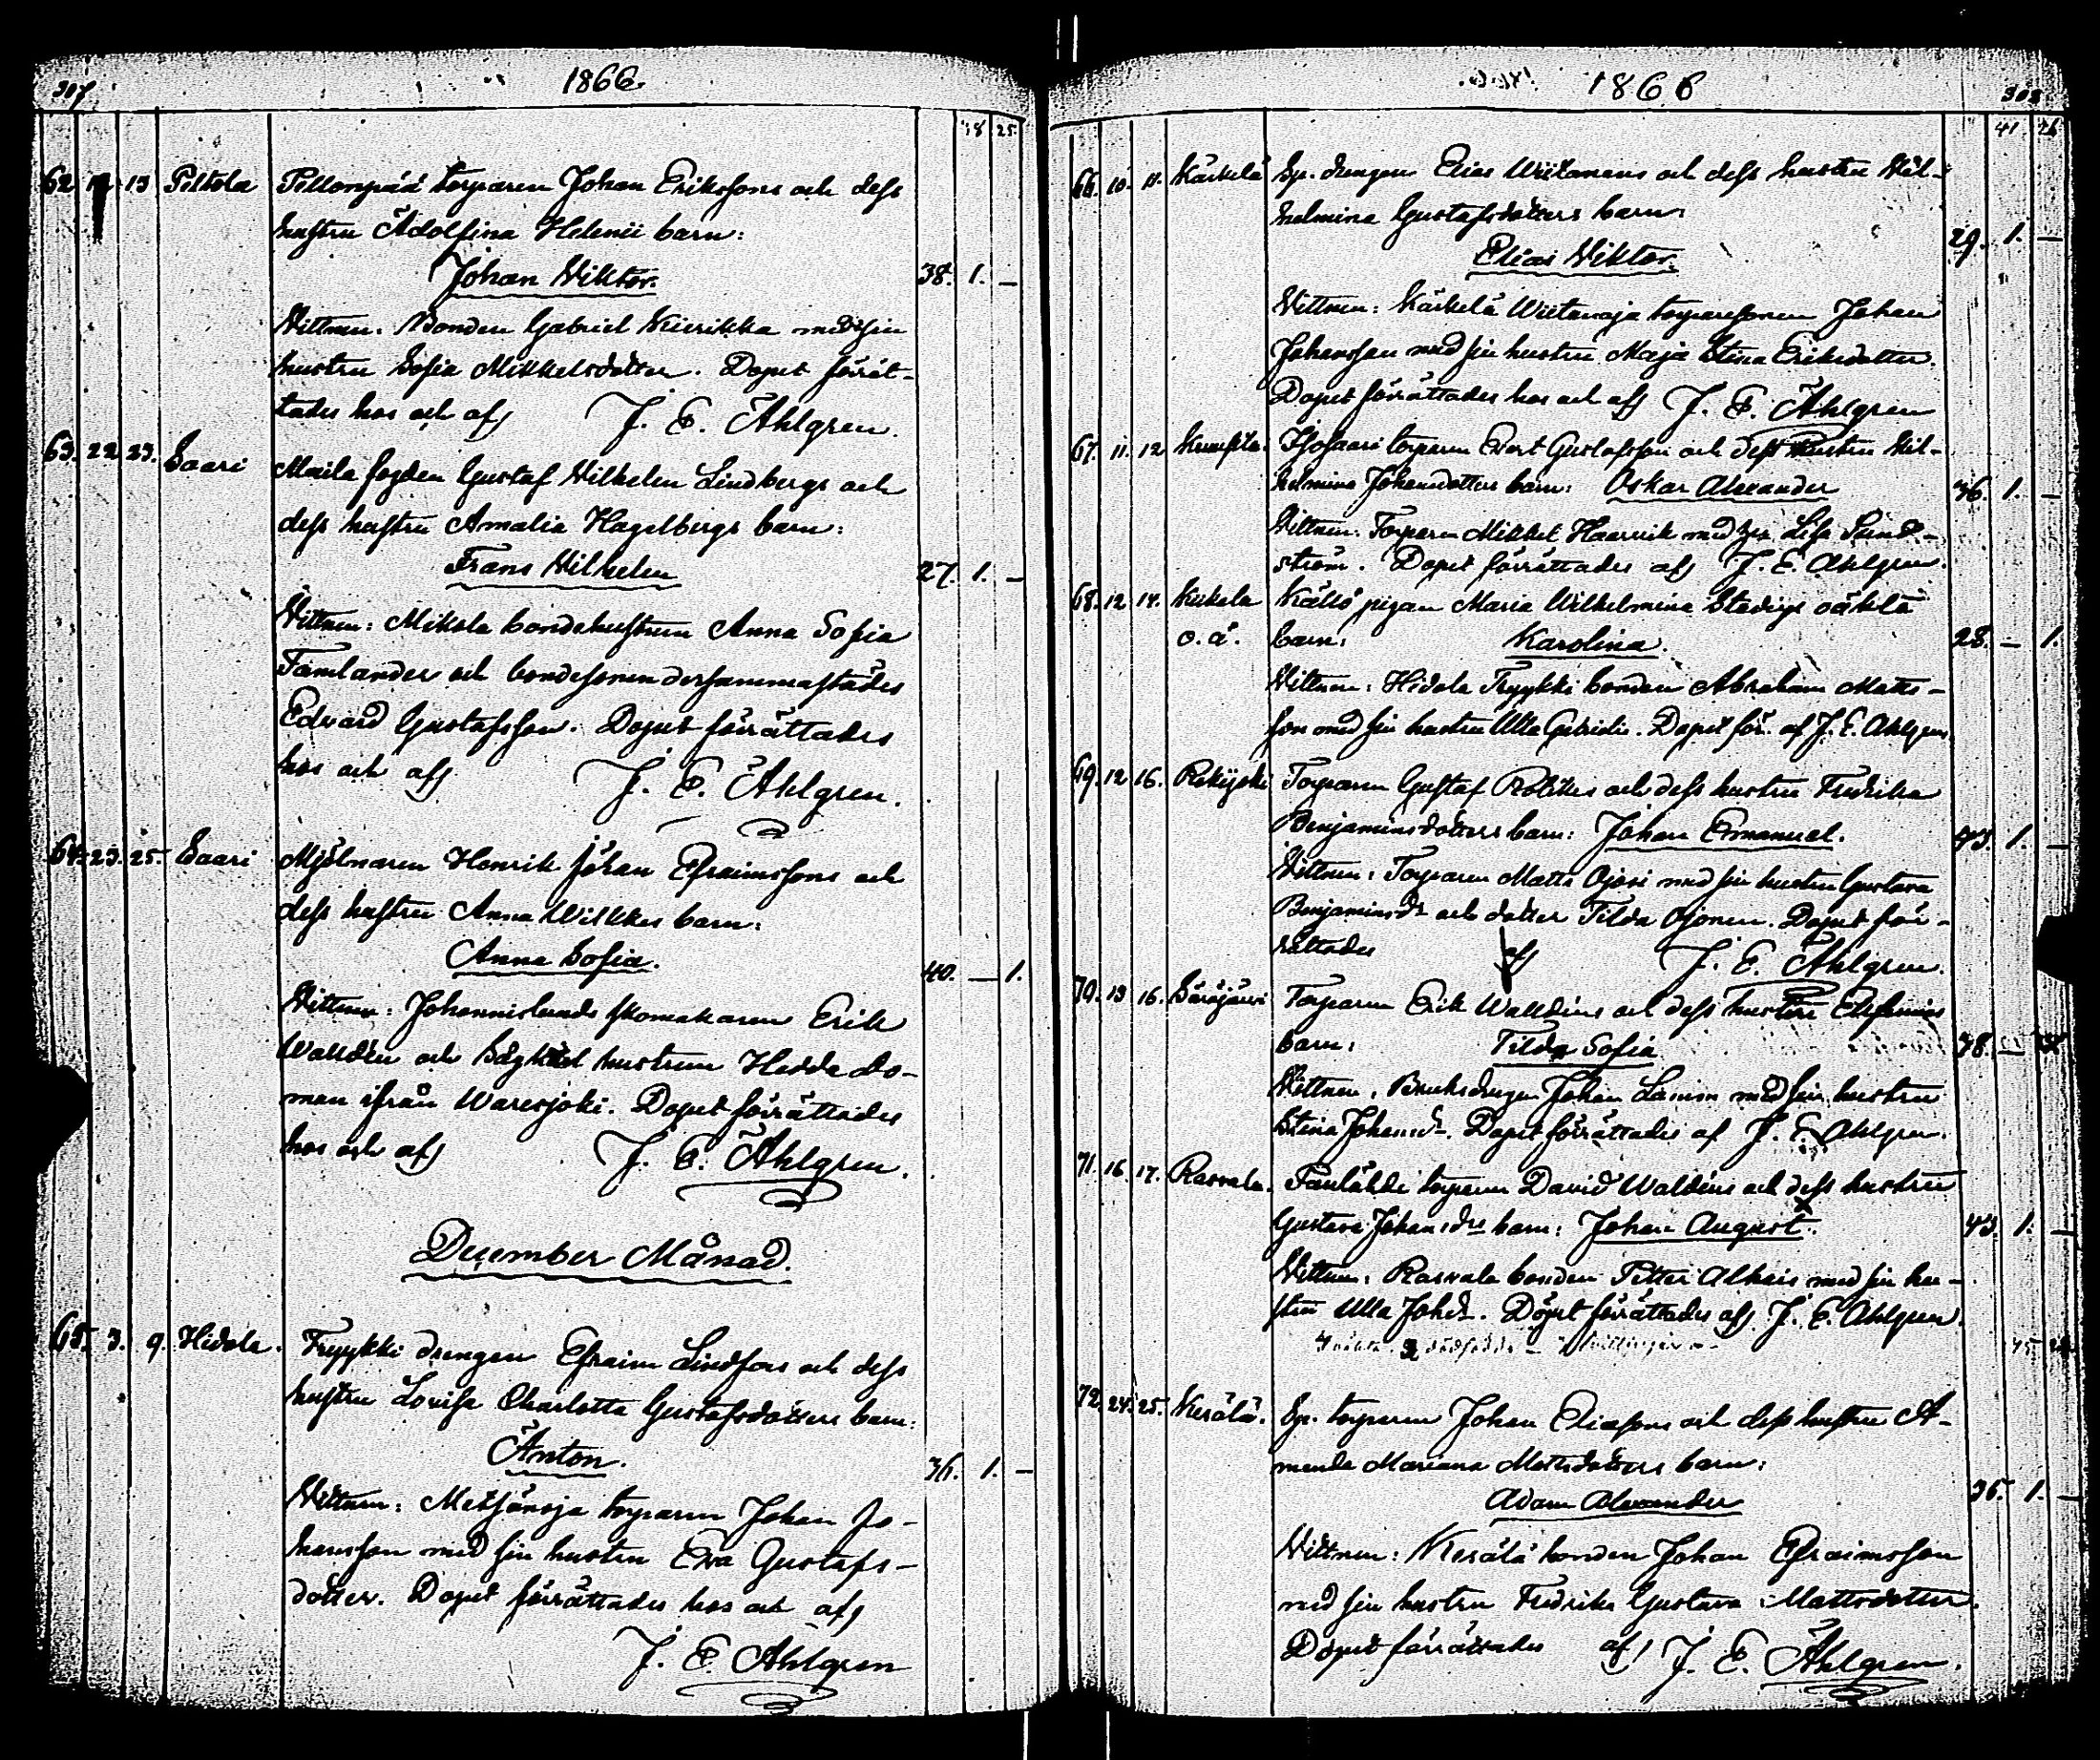 307
1866.
38 25
62 12 13 Piltola Pillonpää torparen Johan Erikssons och dess
hustru Adolfina Helenii barn:
Johan Viktor. 38. 1. —
Vittnen: Bonden Gabriel Kierikka med sin
hustru Sofia Mikkelsdotter. Dopet förrät-
tades hos och af J. E. Ahlgren.
63. 22 23. Saari Maila fogden Gustaf Vilhelm Lindbergs och
dess hustru Amalia Hagelbergs barn:
Frans Vilhelm 27. 1. —
Vittnen: Mikola bondehustrun Anna Sofia
Tamlander och bondesonen dersammastädes
Edvard Gustafsson. Dopet förrättades
hos och af J. E. Ahlgren.
64. 23. 25. Saari Mjölnaren Henrik Johan Efraimssons och
dess hustru Anna Wilkkes barn:
Anna Sofia. 40. — 1.
Vittnen: Johannislunds skomakaren Erik
Walldén och hustrun Hedda Lo-
man ifrån Waresjoki. Dopet förrättades
hos och af J. E. Ahlgren.
December Månad.
65. 3. 9. Hidola. Tryykki drengen Efraim Lindfors och dess
hustru Lovisa Charlotta Gustafsdotters barn:
Anton. 36. 1. —
Vittnen: Metsänoja torparen Johan Jo-
hansson med sin hustru Eva Gustafs-
dotter. Dopet förrättades hos och af
J. E. Ahlgren
1866
308
41. 26
66. 10. 11. Kärkelä Sp. drengen Elias Wiitanens och dess hustru Vil-
helmina Gustafsdotters barn:
Elias Viktor. 29. 1. —
Vittnen: Kärkelä Wiitanoja torparesonen Johan
Johansson med sin hustru Maja Stina Eriksdotter.
Dopet förrättades hos och af J. E. Ahlgren
67. 11. 12 Isosaari torparen Evert Gustafsson och dess hustru Vil-
helmina Johansdotters barn: Oskar Alexander 36. 1. —
Vittnen: Torparen Mikkel Haarvik med Lisa Sund-
ström. Dopet förrättades af J. E. Ahlgren.
68. 12 14. Kukola Källö pigan Maria Wilhelmina Stadigs oäkta
o. ä. barn: Karolina. 28. — 1.
Vittnen: Hidola Tryykki bonden Abraham Matts-
son med sin hustru Ulla Gabrielsd. Dopet för. af J. E. Ahlgren
69. 12 16. Rekijoki Torparen Gustaf Rolikes och dess hustru Fredrika
Benjaminsdotters barn: Johan Emanuel. 43. 1. —
Vittnen: Torparen Matts Ojoisi med sin hustru Gustava
Benjaminsdr och dotter Tilda Ojonen. Dopet för-
rättades af J. E. Ahlgren.
70. 13 16. Särkjärvi Torparen Erik Walldéns och dess hustru
barn: Tilda Sofia 38. —
Vittnen: Bruksdrengen Johan Lamin med sin hustru
Stina Johansdr. Dopet förrättades af J. E. Ahlgren.
71. 16. 17. Rasvala. torparen David Waldéns och dess hustru
Gustava Johansdrs barn: Johan August. 43. 1. —
Vittnen: Rasvala bonden Petter Alhais med sin hu-
stru Ulla Johdr. Dopet förrättades af J. E. Ahlgren.
72. 24. 25. Kerälä. Sp. torparen Johan Eliassons och dess hustru A-
manda Mariana Mattsdotters barn:
Adam Alexander 35. 1. —
Vittnen: Kerälä bonden Johan Efraimsson
med sin hustru Fredrika Gustava Mattsdotter.
Dopet förrättades af J. E. Ahlgren.